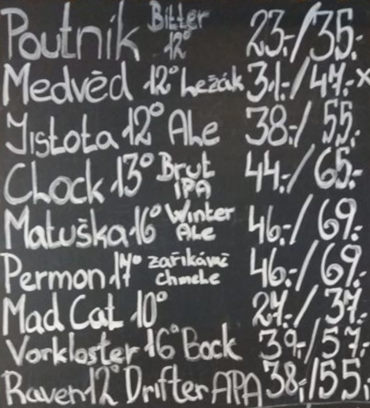 Poutník Bitter 12° 23.-/35.-
Medvěd 12° Ležák 31.-/47.-x
Jistota 12° Ale 38.-/55.-
Chock 13° Brut IPA 44.-/65.-
Matuška 16° Winter Ale 46.-/69.-
Permon 17° zaříkávač Chmele 46.-/69.-
Mad Cat 10° 27.-/37.-
Vorkloster 16° Bock 39.-/57.-
Raven 12° Drifter APA 38.-/55.-